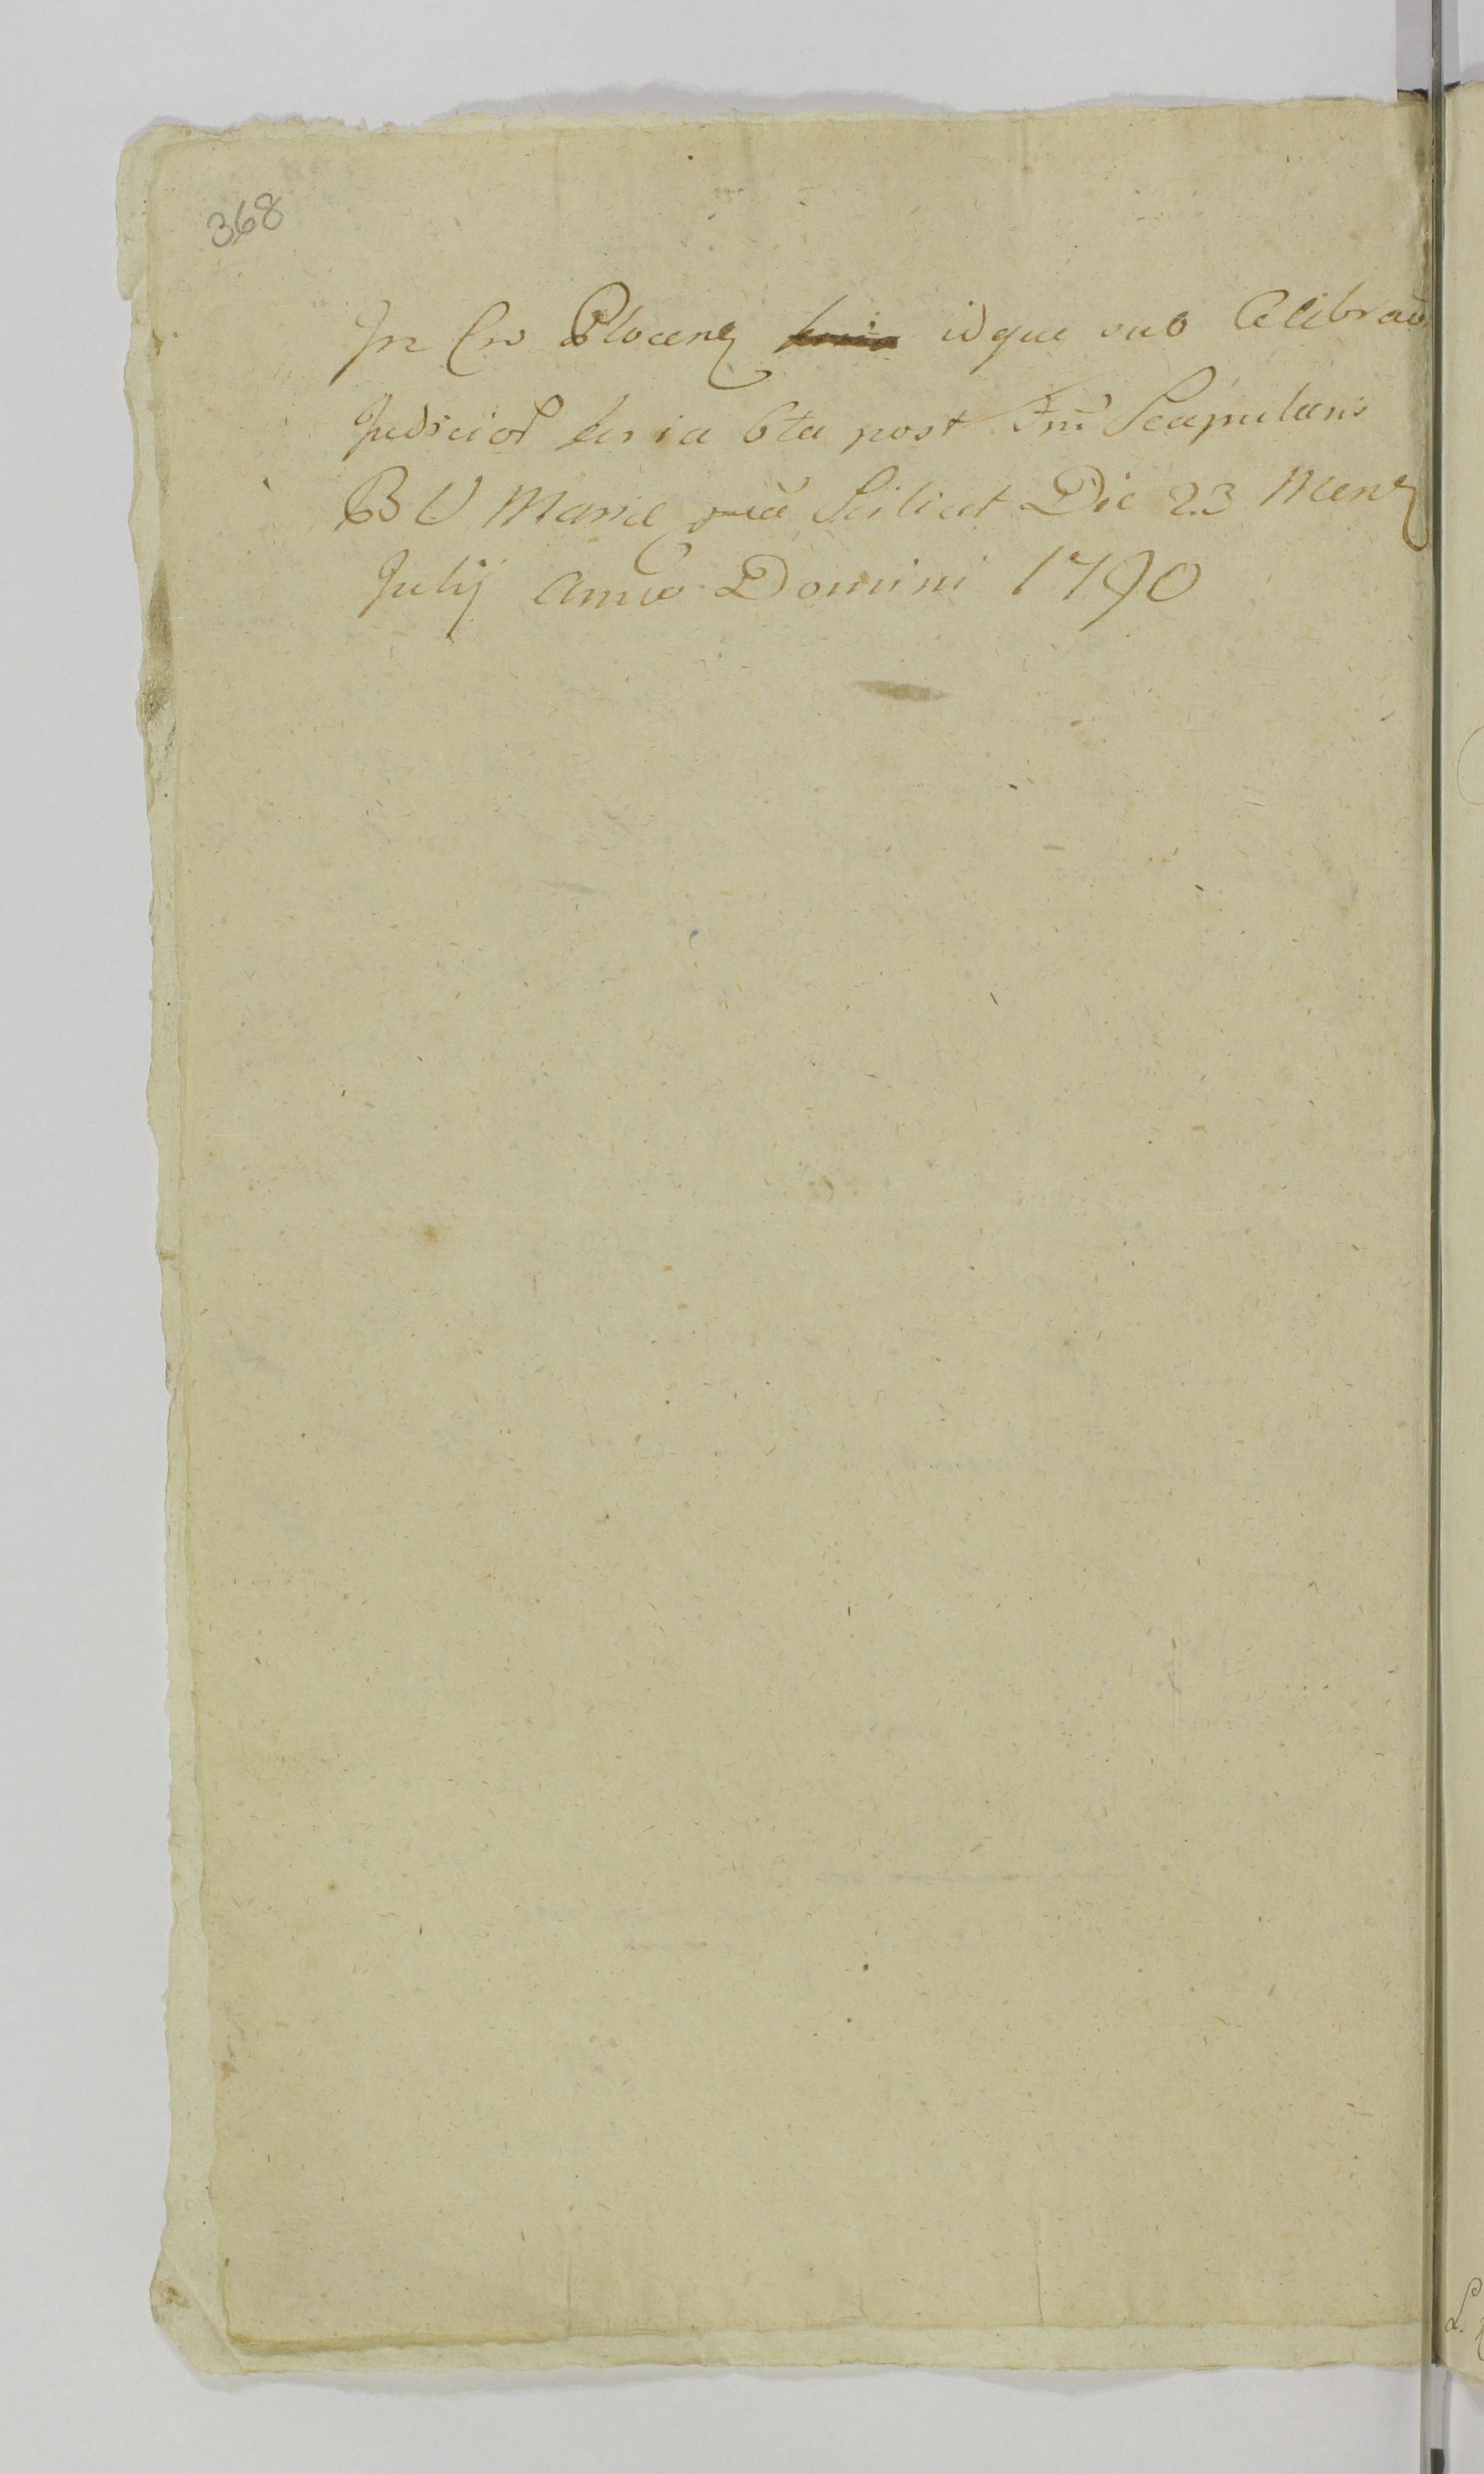 368
In Cro Plocens idque sub Celebraō
Judicior feria 6ta post Fm̄ Scapularis
B V Mariæ Scilicet Die 23 Mens
Julij Anno Domini 1790